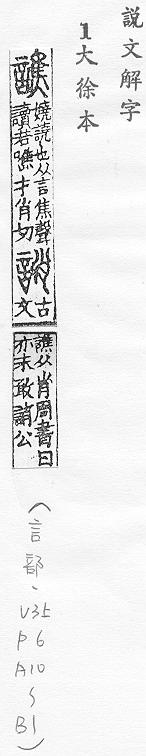 說文解字
1大徐本
譙
嬈譊也从言焦聲
讀若噍才肖切
誚
古
文
譙从肖周書曰
亦未敢誚公
（言部、V3上 P6 A10〜B1）